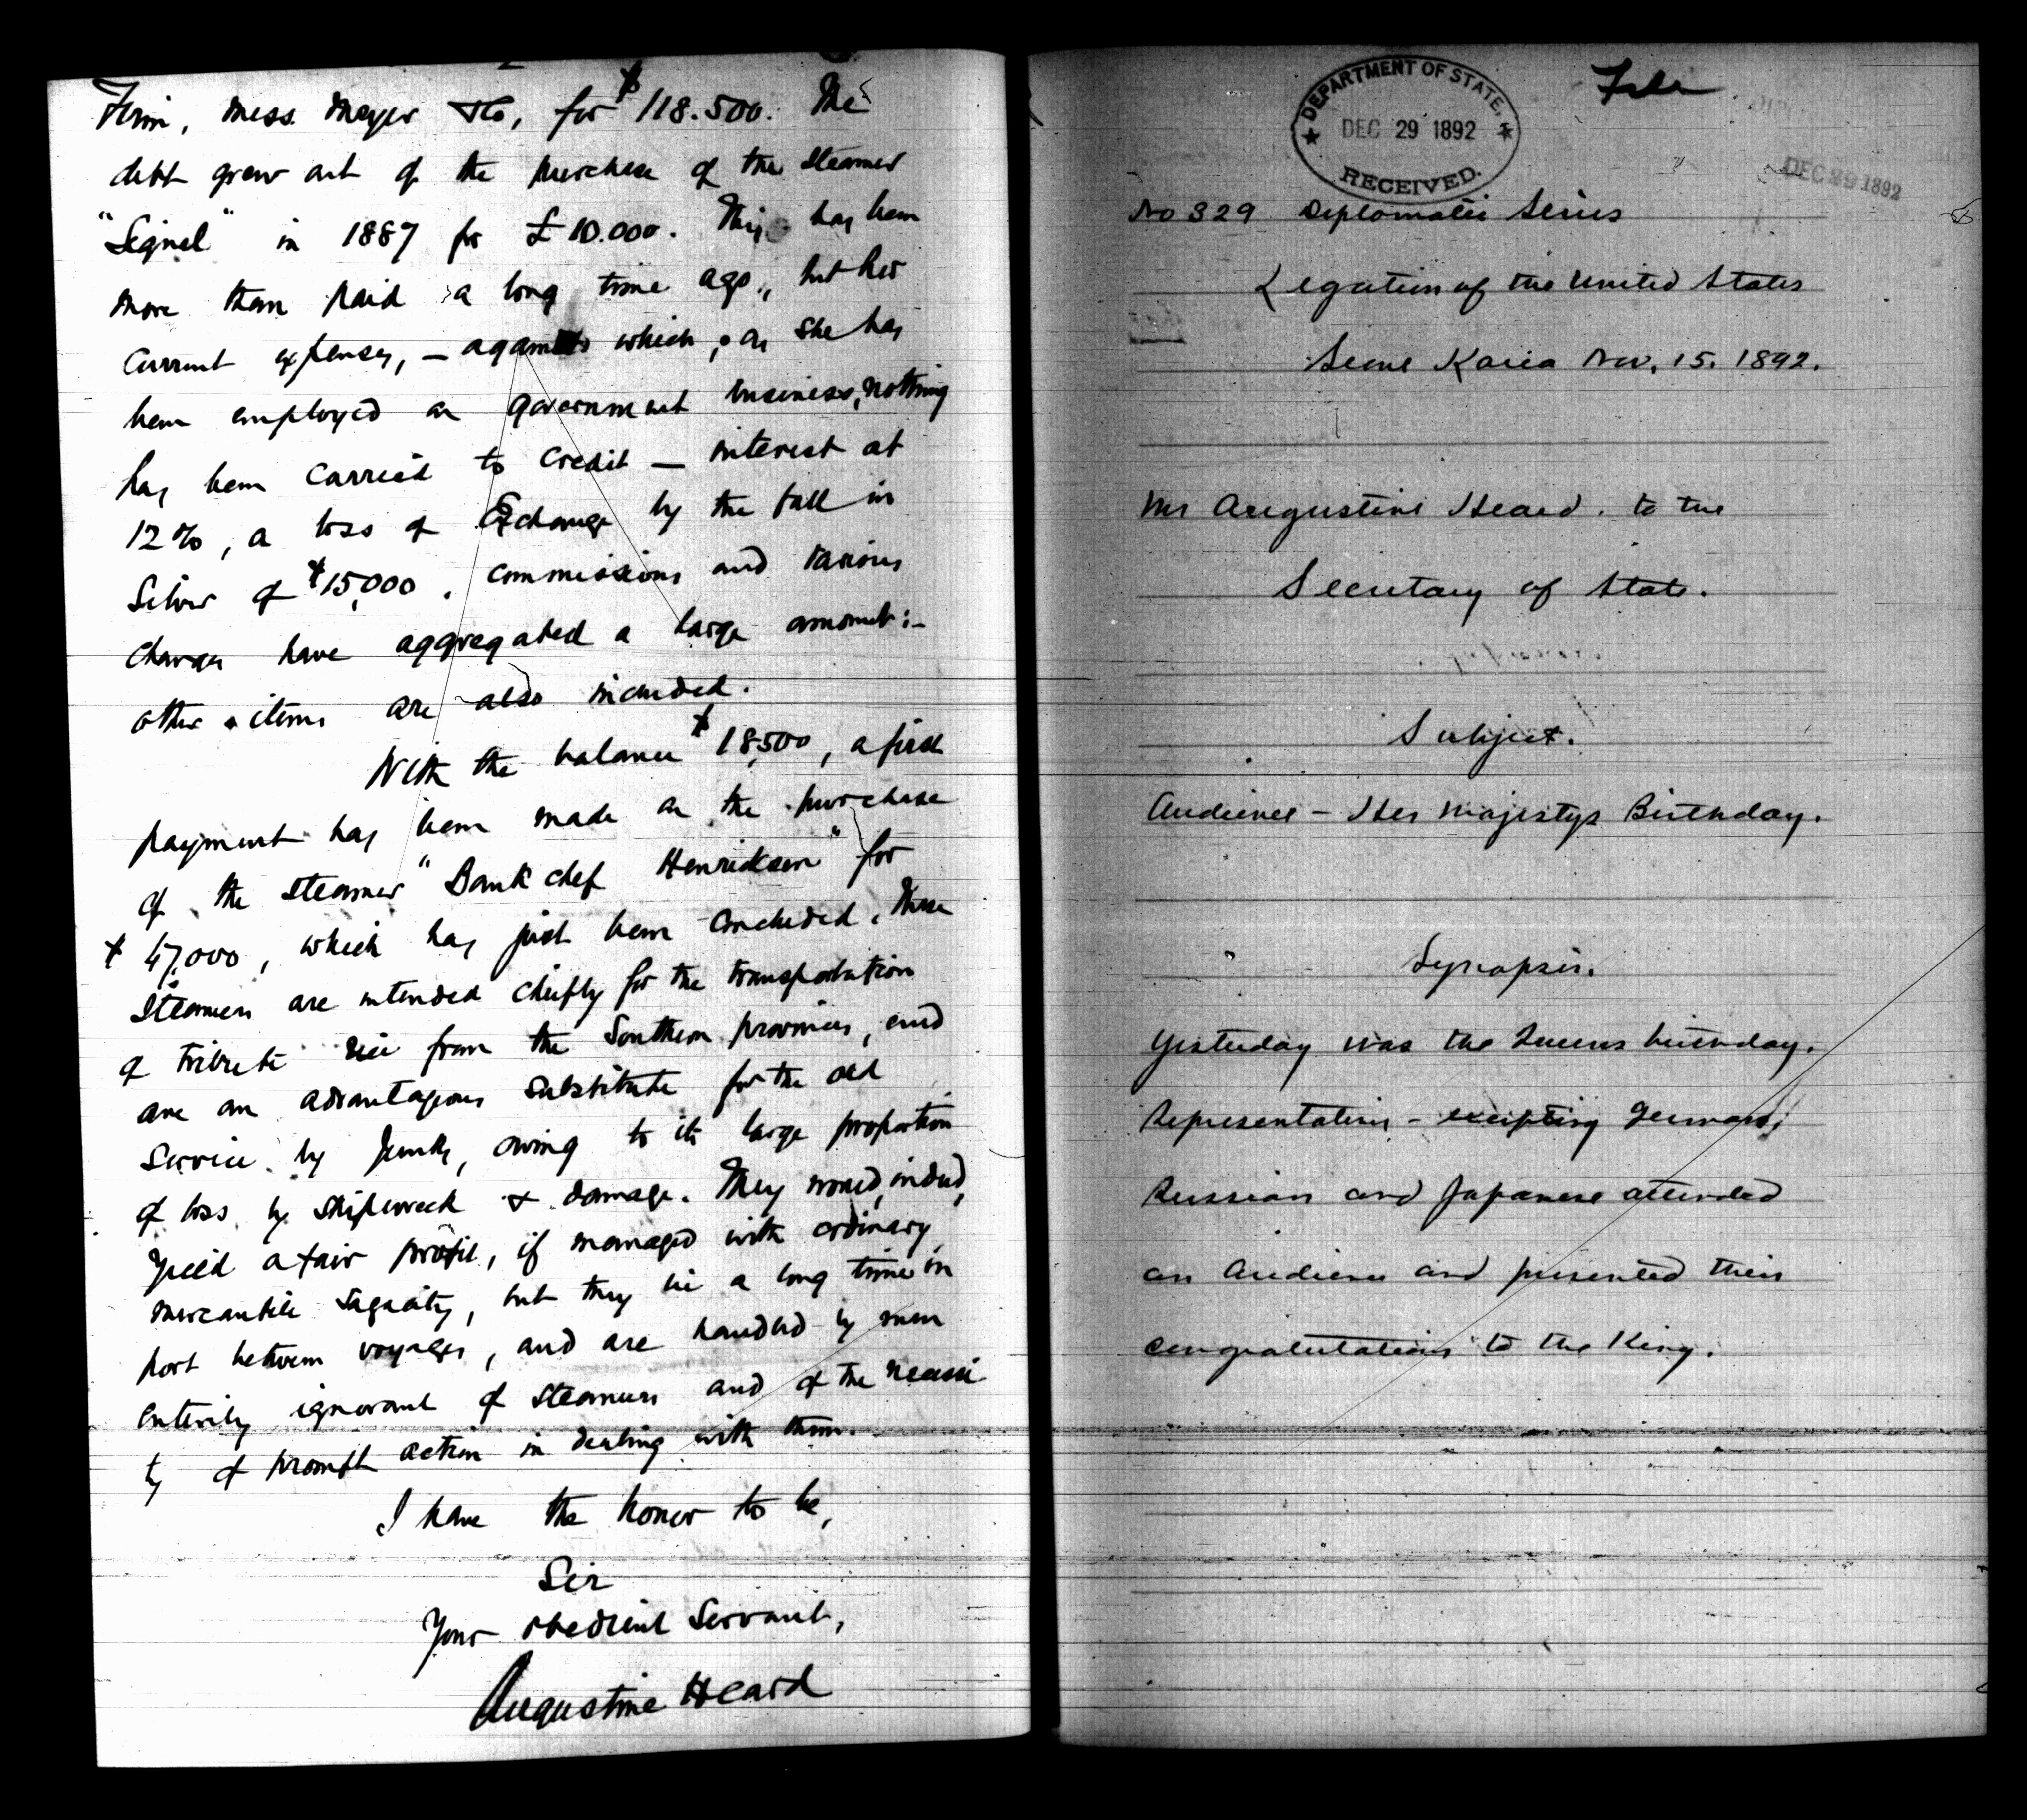 Firm, Mess. Meyer & Co, for $118.500. The
debt grew out of the purchase of the Steamer
"Signal" in 1887 for £10.000. This has been
more than paid a long time ago, but her
current expenses, — against which, as she has
been employed on government business, nothing
has been carried to credit — interest at
12%, a loss of Exchange by the fall in
Silver of $15,000, commissions and various
charges have aggregated a large amount:-
other items are also included.
With the balance $18,500, a first
payment has been made on the purchase
of the Steamer "Bankchef Henriksen" for
$47,000, which has just been concluded. These
Steamers are intended chiefly for the transportation
of tribute rice from the Southern provinces, and
are an advantageous substitute for the old
Service by Junks, owing to its large proportion
of loss by Shipwreck & damage. They would, indeed,
yield a fair profit, if managed with ordinary
mercantile Sagacity, but they lie a long time in
port between voyages, and are handled by men
entirely ignorant of Steamers and of the necessi
ty of prompt action in dealing with them.
I have the honor to be,
Sir
Your obedient Servant,
Augustine Heard
DEPARTMENT OF STATE,
DEC 29 1892
RECEIVED.
File
DEC 29 1892
No 329 Diplomatic Series
Legation of the United States
Seoul Korea Nov. 15. 1892.
Mr Augustine Heard. to the
Secretary of State.
Subject.
Audience – Her Majestys Birthday.
Synopsis.
Yesterday was the Queens birthday.
Representatives – excepting German,
Russian and Japanese attended
an Audience and presented their
congratulations to the King.